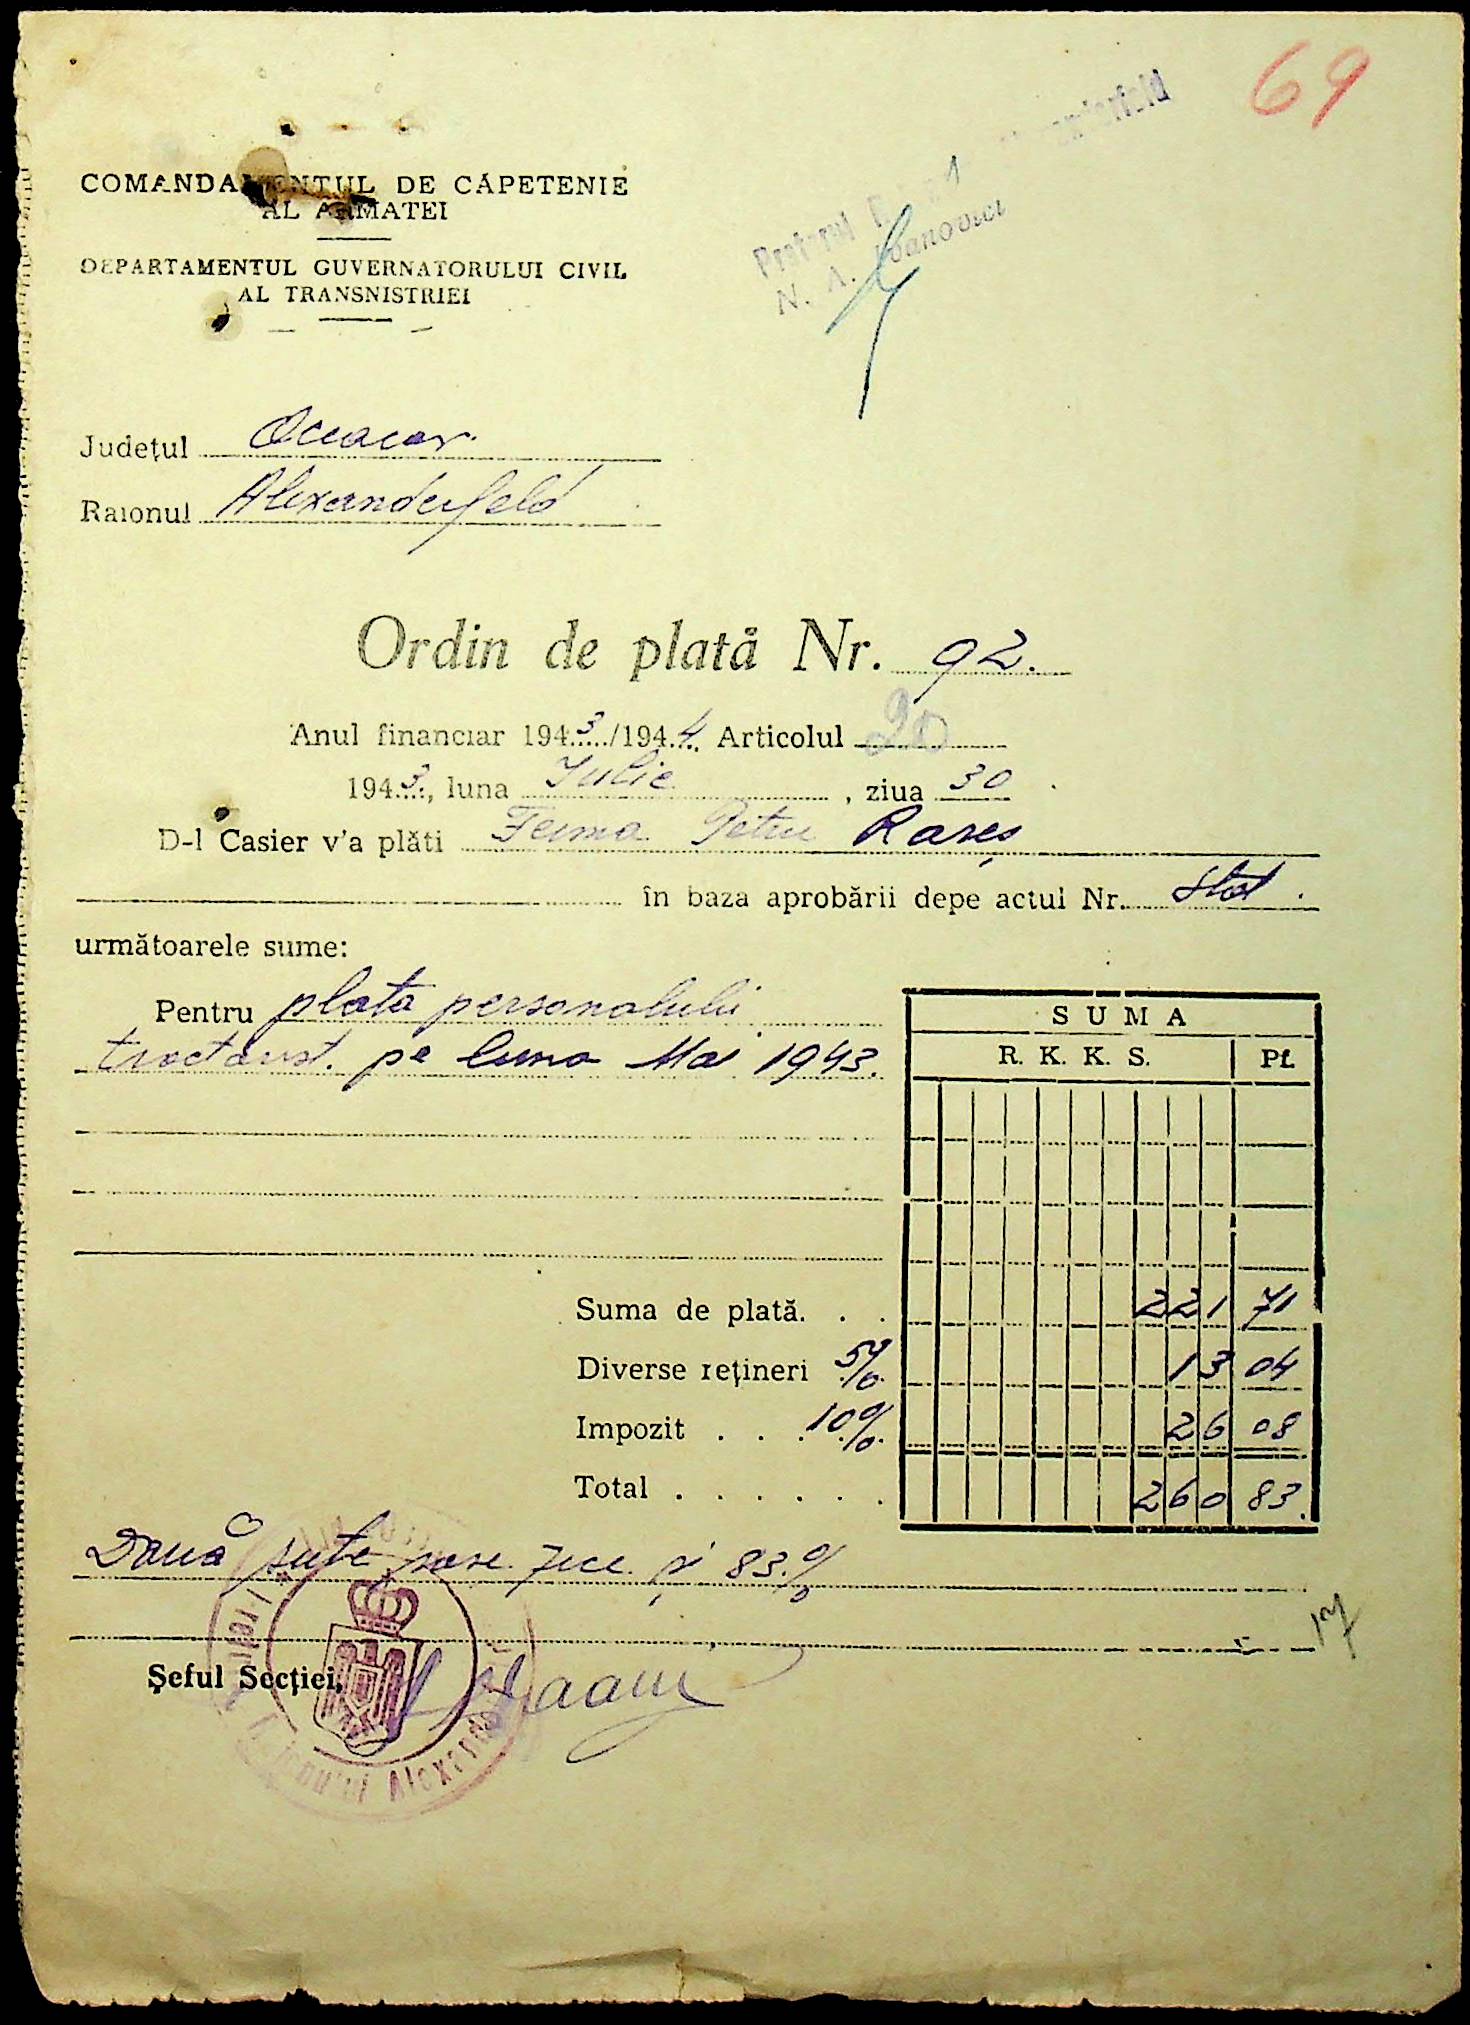 69
Pretorul
N. A. Ioanovici
COMANDAMENTUL DE CĂPETENIE
AL ARMATEI
DEPARTAMENTUL GUVERNATORULUI CIVIL
AL TRANSNISTRIEI
Județul Oceacov.
Raionul Alexanderfeld
Ordin de plată Nr. 92.
Anul financiar 1943/1944 Articolul 20
1943, luna Iulie, ziua 30
D-l Casier v'a plăti Ferma Petru Rareș
în baza aprobării depe actul Nr. Stat.
următoarele sume:
Pentru plata personalului
tractorist. pe luna Mai 1943.
SUMA
R. K. K. S. Pf.
Suma de plată. . . 221 71
Diverse rețineri 5% 13 04
Impozit . . . 10% 26 08
Total . . . . . . 260 83.
Două sute șase zece și 83.%
17
Șeful Secției,